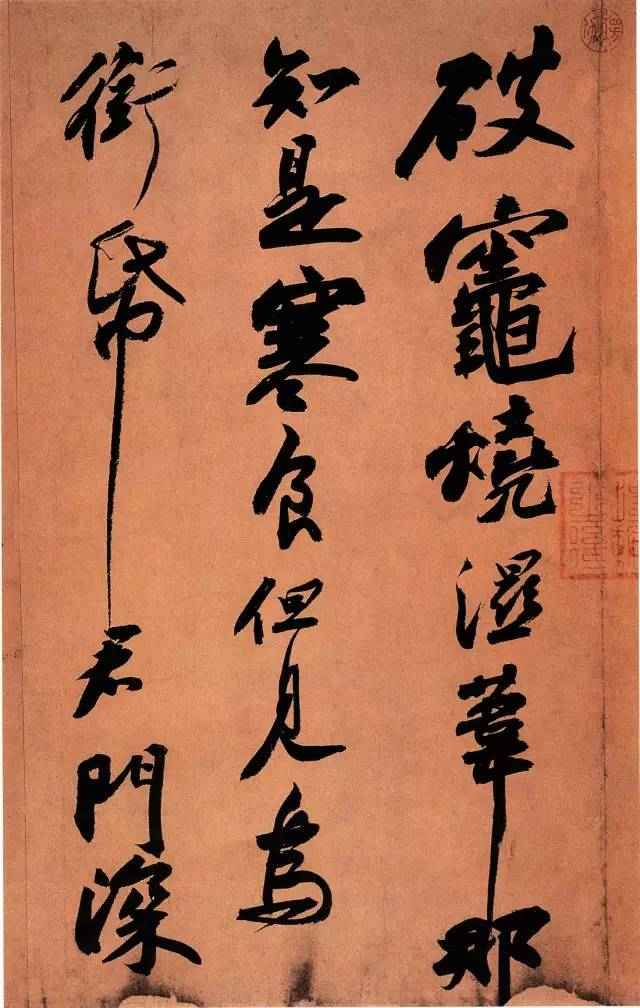 破竈燒濕葦那
知是寒食但見烏
銜帋君門深